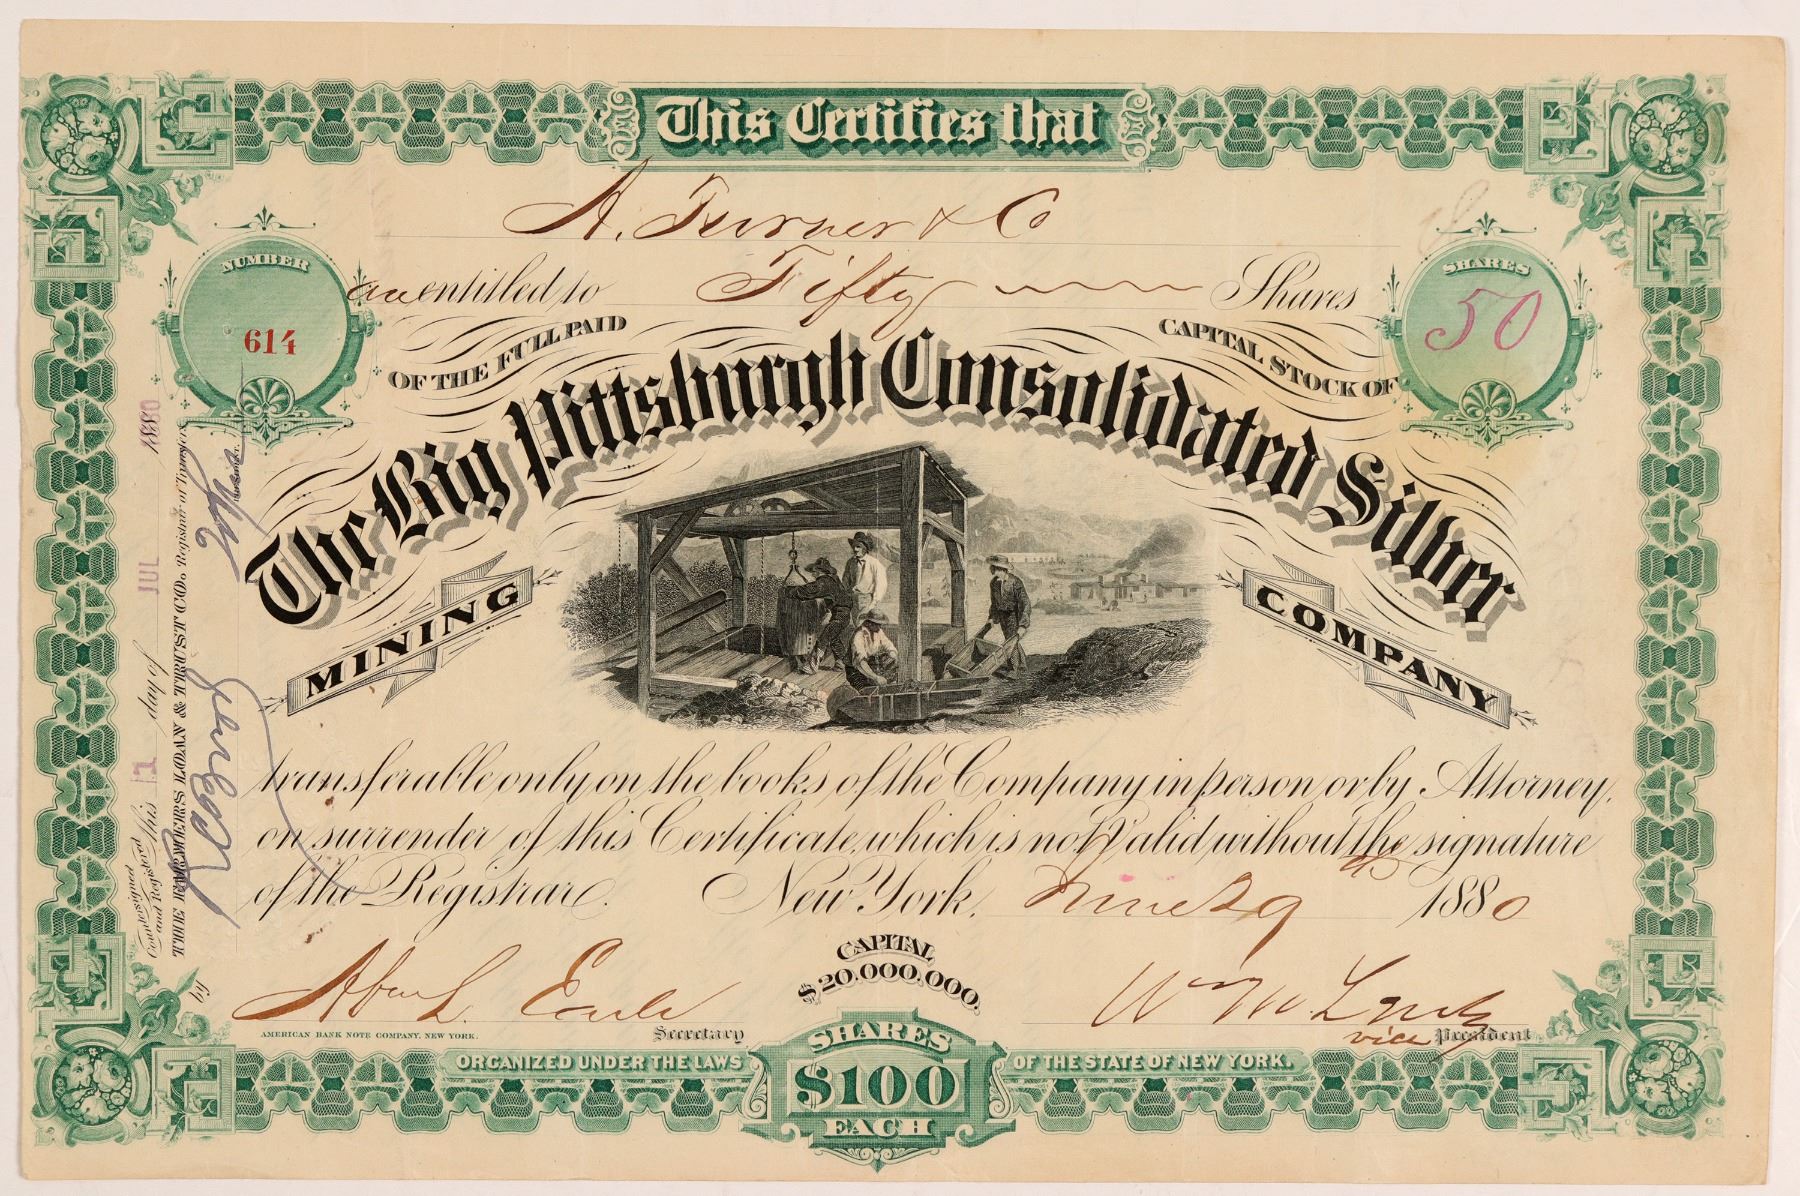 This Certifies that
A. Turner & Co
NUMBER
614
are entitled to Fifty Shares
SHARES
50
OF THE FULL PAID CAPITAL STOCK OF
The Big Pittsburgh Consolidated Silver
MINING COMPANY
transferable only on the books of the Company in person or by Attorney,
on surrender of this Certificate, which is not Valid without the signature
of the Registrar. New York, June 29th 1880
CAPITAL
$20,000,000.
Secretary
vice President
AMERICAN BANK NOTE COMPANY, NEW YORK.
ORGANIZED UNDER THE LAWS OF THE STATE OF NEW YORK.
SHARES
$100
EACH
Countersigned
and Registered this 12 day of JUL 1880
THE FARMERS LOAN & TRUST CO. Registrar of Transfers
by